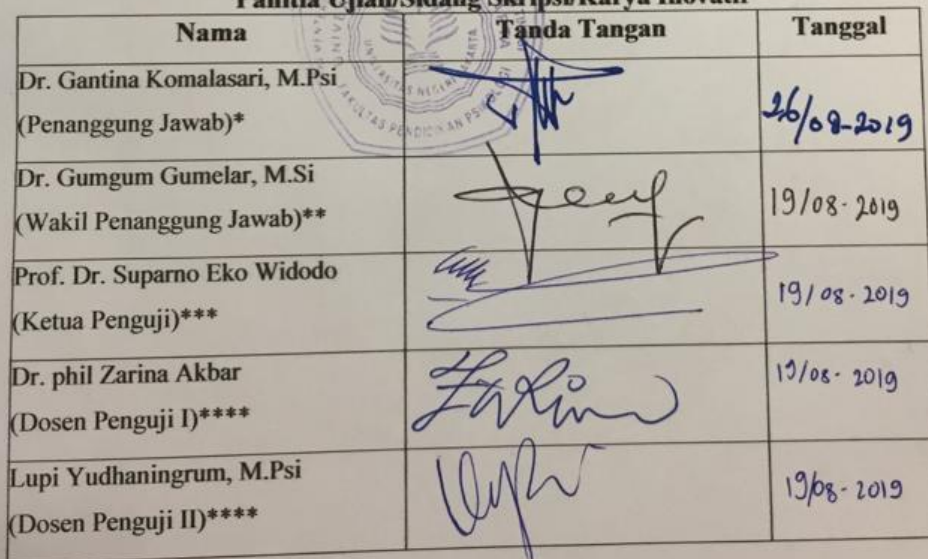 Panitia Ujian/Sidang Skripsi/Karya Inovatif
Nama Tanda Tangan Tanggal
Dr. Gantina Komalasari, M.Psi
(Penanggung Jawab)* 26/08-2019
Dr. Gumgum Gumelar, M.Si
(Wakil Penanggung Jawab)** 19/08-2019
Prof. Dr. Suparno Eko Widodo
(Ketua Penguji)*** 19/08-2019
Dr. phil Zarina Akbar
(Dosen Penguji I)**** 19/08-2019
Lupi Yudhaningrum, M.Psi
(Dosen Penguji II)**** 19/08-2019
UNIVERSITAS NEGERI JAKARTA
FAKULTAS PENDIDIKAN PSIKOLOGI